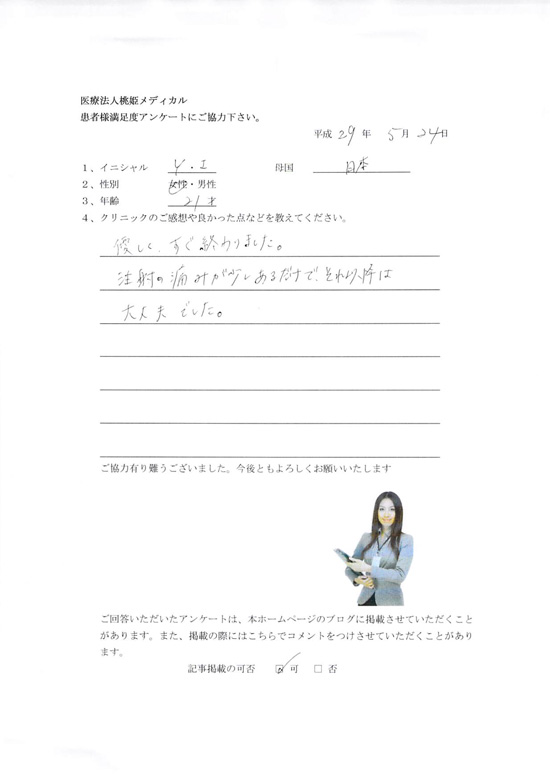 医療法人桃姫メディカル
患者様満足度アンケートにご協力下さい。
平成 29 年 5 月 24 日
1、イニシャル Y・I 母国 日本
2、性別 女性・男性
3、年齢 21才
4、クリニックのご感想や良かった点などを教えてください。
優しく、すぐ終わりました。
注射の痛みが少しあるだけで、それ以降は
大丈夫でした。
ご協力有り難うございました。今後ともよろしくお願いいたします
ご回答いただいたアンケートは、本ホームページのブログに掲載させていただくこと
があります。また、掲載の際にはこちらでコメントをつけさせていただくことがあり
ます。
記事掲載の可否 ☑ 可 □ 否